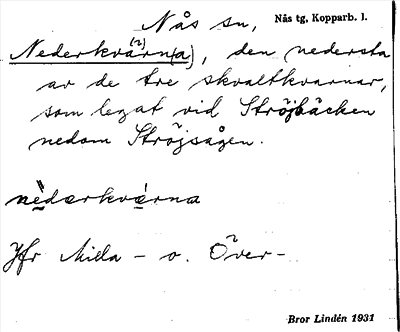 Nås sn, Nås tg, Kopparb. l.
Nederkvarn(a)(?), den nedersta
av de tre skvaltkvarnar,
som legat vid Ströjbäcken
nedom Ströjsågen.
nèdærkvárna
Jfr Milla- o. Över-
Bror Lindén 1931